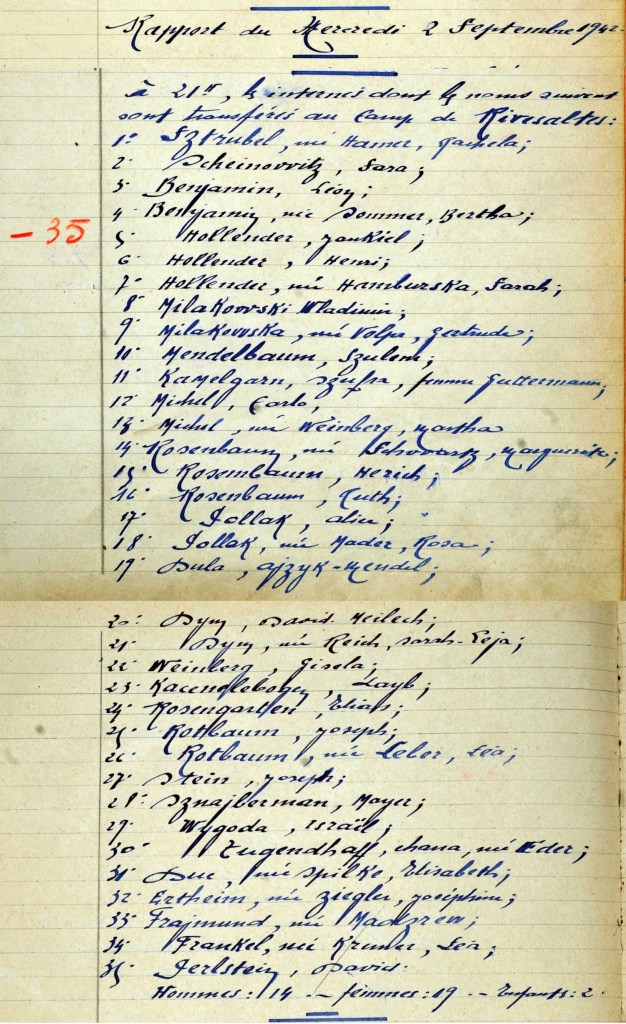 Rapport du Mercredi 2 Septembre 1942
À 21H, les internés dont les noms suivent
sont transférés au Camp de Rivesaltes:
1° Sztrubel, née Hamer,
2° Scheinovvitz, Sara;
3 Benjamin, Léon;
4 Benjamin, née Sommer, Bertha;
- 35
5° Hollender, Jankiel;
6 Hollender, Henri;
7° Hollender, née Hamburska, Sarah;
8° Milakovski Wladimir;
9° Milakovvska, née Volpe, Gertrude;
10° Mendelbaum, Szulem;
11° Kamelgarn, femme Guttermann;
12° Michel, Carlo,
13° Michel, née Weinberg, Martha
14° Rosenbaum, née Schvvartz, Marguerite;
15° Rosembaum, Herich;
16° Rosenbaum, Ruth;
17° Pollak, Aline;
18° Pollak, née Mader, Rosa;
19° Dula, Ajzyk-Mendel;
20° Dym, David Meilech;
21 Dym, née Reich, Sarah-Leja;
22 Weinberg, Gisela;
23° Kacenelebogen, Layb;
24° Rosengarten, Elias;
25 Rotbaum, Joseph;
26° Rotbaum, née Leber, Léa;
27° Stein, Joseph;
28° Sznajberman, Mayer;
29° Wygoda, Israël;
30° Tugendhaff, Chana, née Eder;
31 Duc, née Spilke, Elisabeth;
32° Ertheim, née Ziegler, Joséphine;
33° Frajmund, née
34° Frankel, née Kremer, Léa;
35 Perlstein, David.
Hommes: 14 - femmes: 19 - Enfants: 2.